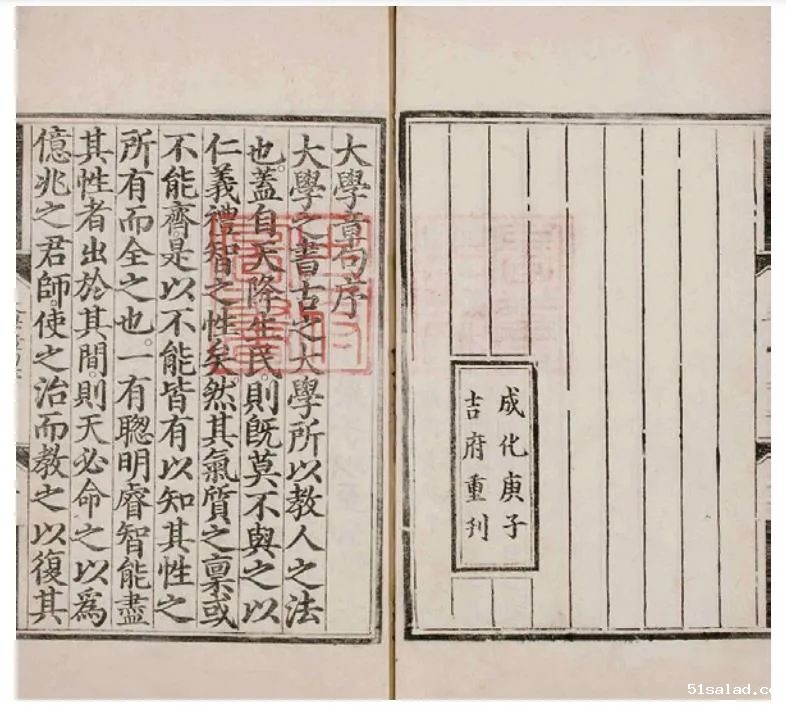 成化庚子
吉府重刊
大學章句序
大學之書古之大學所以教人之法
也。蓋自天降生民。則既莫不與之以
仁義禮智之性矣。然其氣質之稟或
不能齊。是以不能皆有以知其性之
所有而全之也。一有聰明睿智能盡
其性者出於其間。則天必命之以為
億兆之君師。使之治而教之以復其
51salad.co